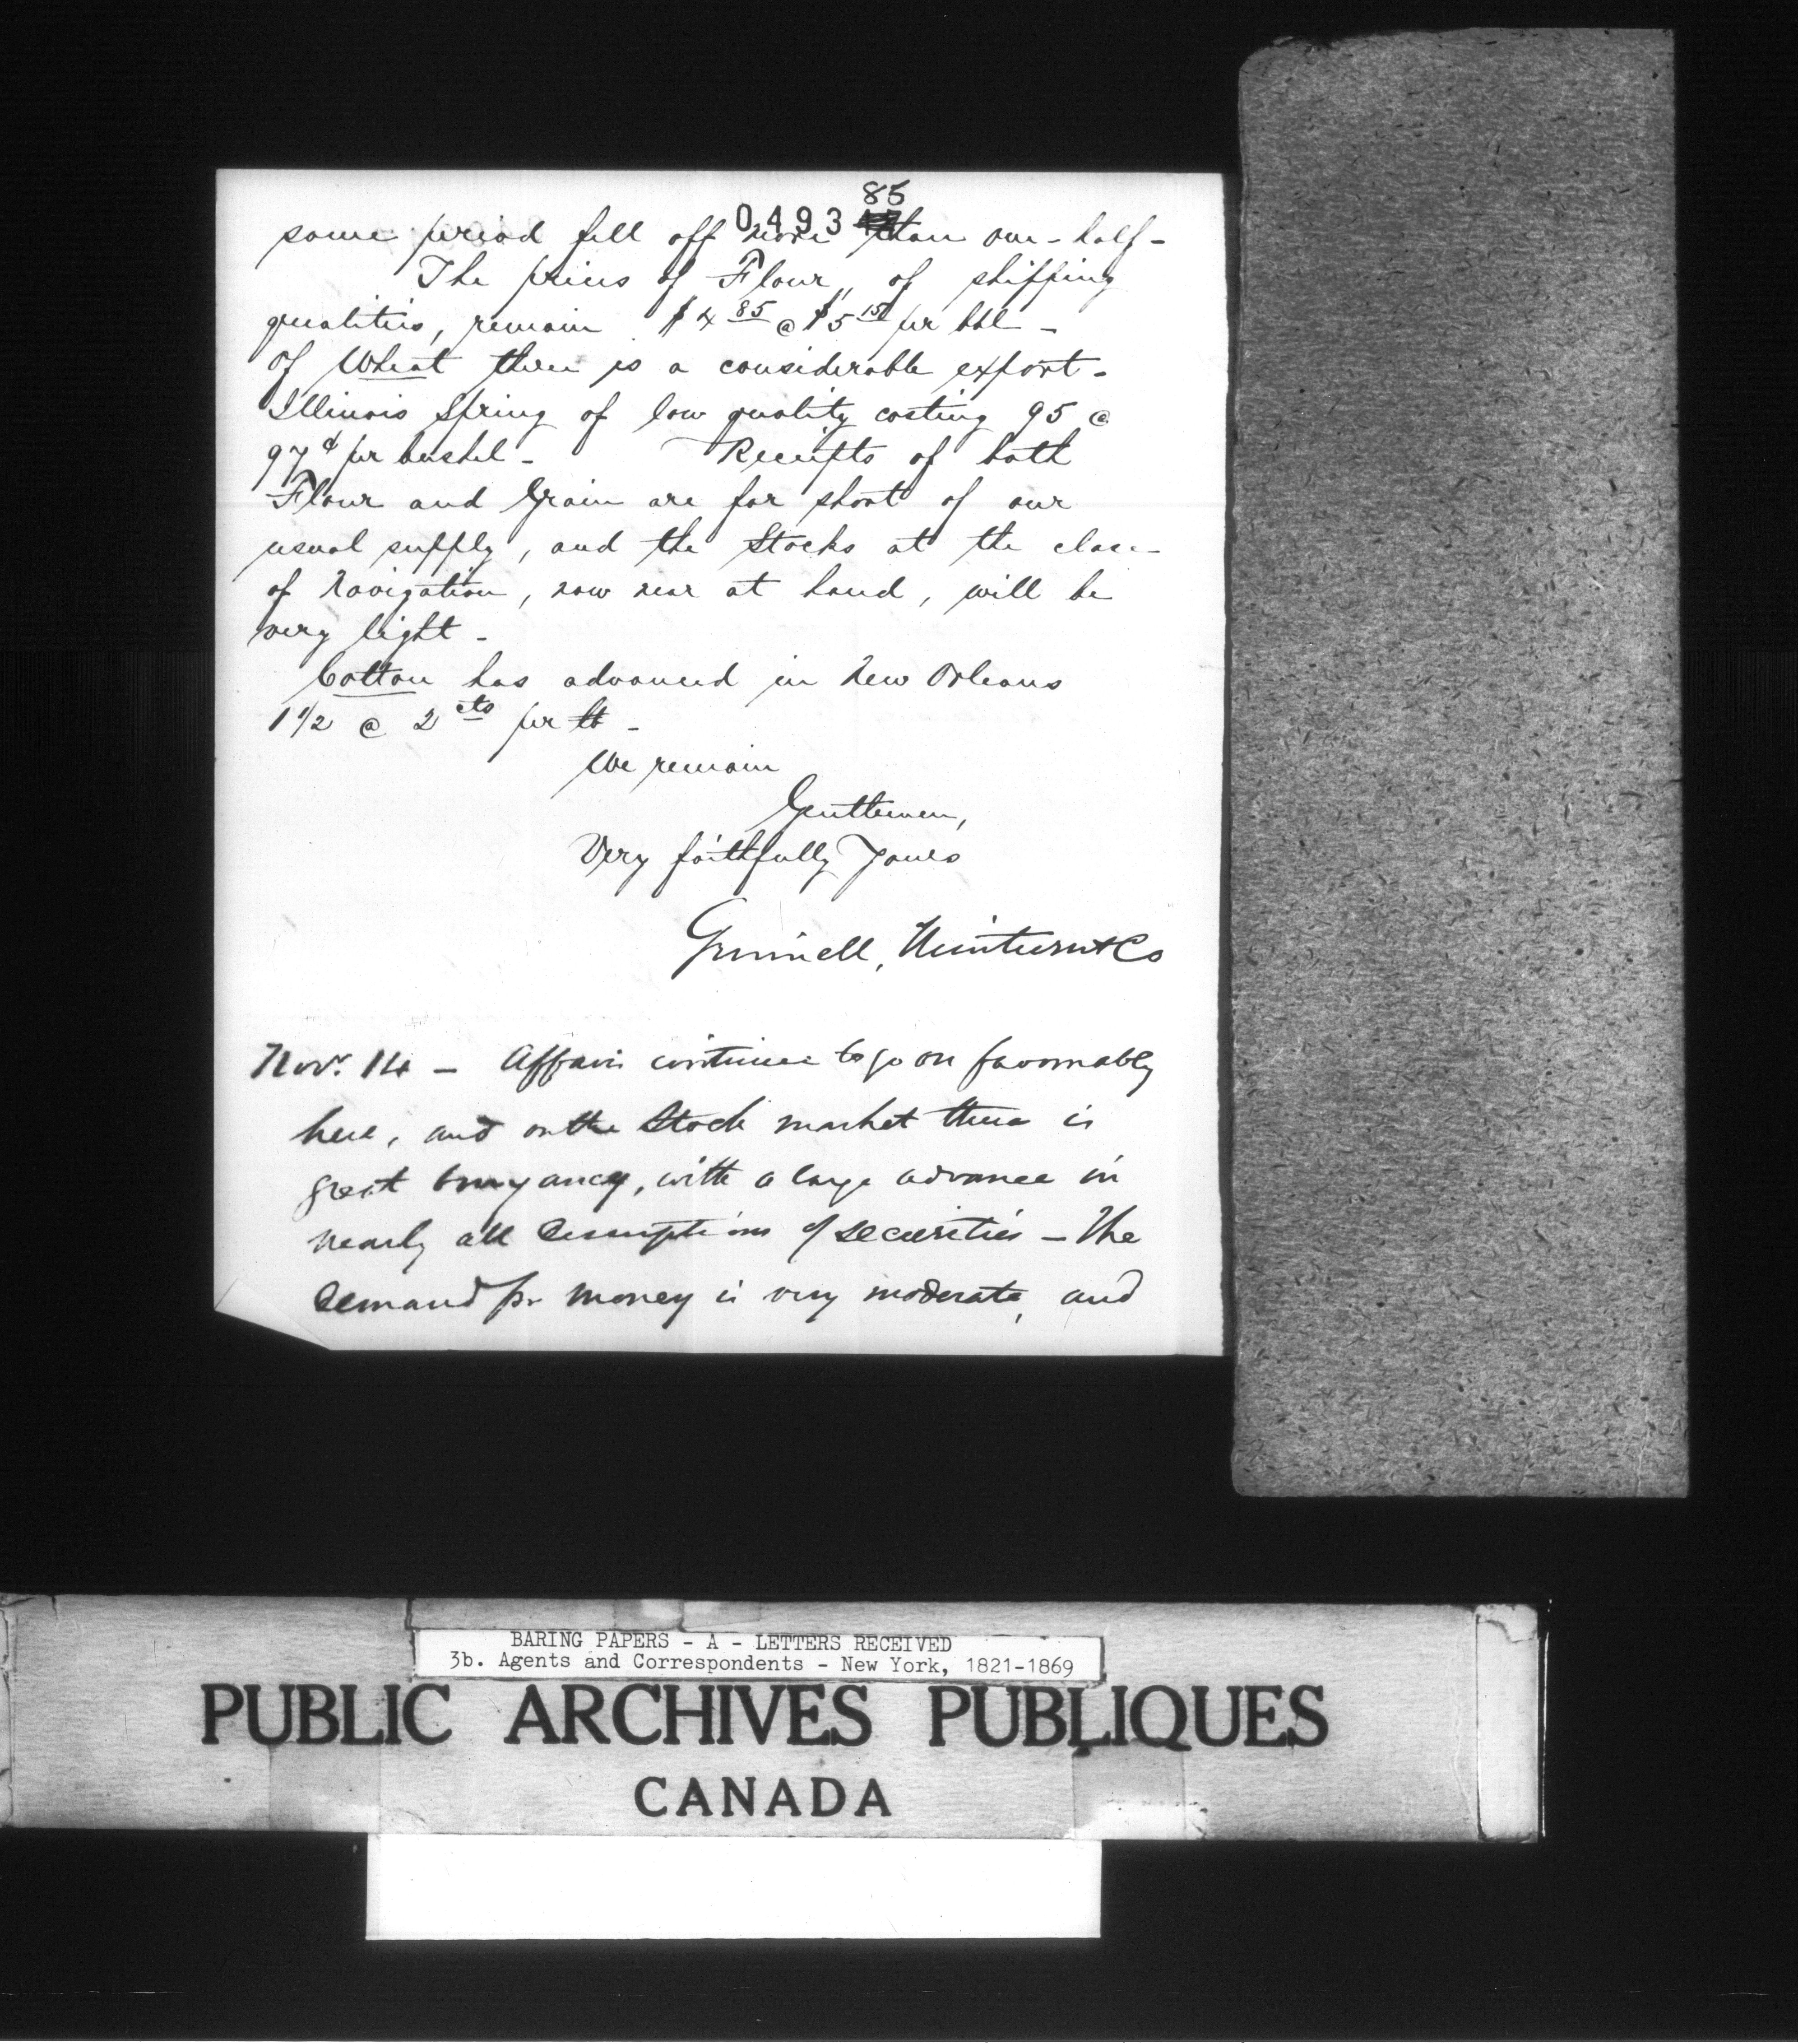 85
0493
same period fell off more than one-half -
The prices of Flour, of shipping
qualities, remain $4 85 @ $5 15 per bbl -
Of Wheat there is a considerable export -
Illinois Spring of low quality costing 95 @
97 c per bushel - Receipts of both
Flour and Grain are far short of our
usual supply, and the Stocks at the close
of Navigation, now near at hand, will be
very light -
Cotton has advanced in New Orleans
1 1/2 @ 2 cts per lb -
We remain
Gentlemen,
Very faithfully Yours
Grinnell, Minturn & Co
Nov. 14 - Affairs continue to go on favorably
here, and on the Stock market there is
great buoyancy, with a large advance in
nearly all descriptions of securities - The
demand for money is very moderate, and
BARING PAPERS - A - LETTERS RECEIVED
3b. Agents and Correspondents - New York, 1821-1869
PUBLIC ARCHIVES PUBLIQUES
CANADA